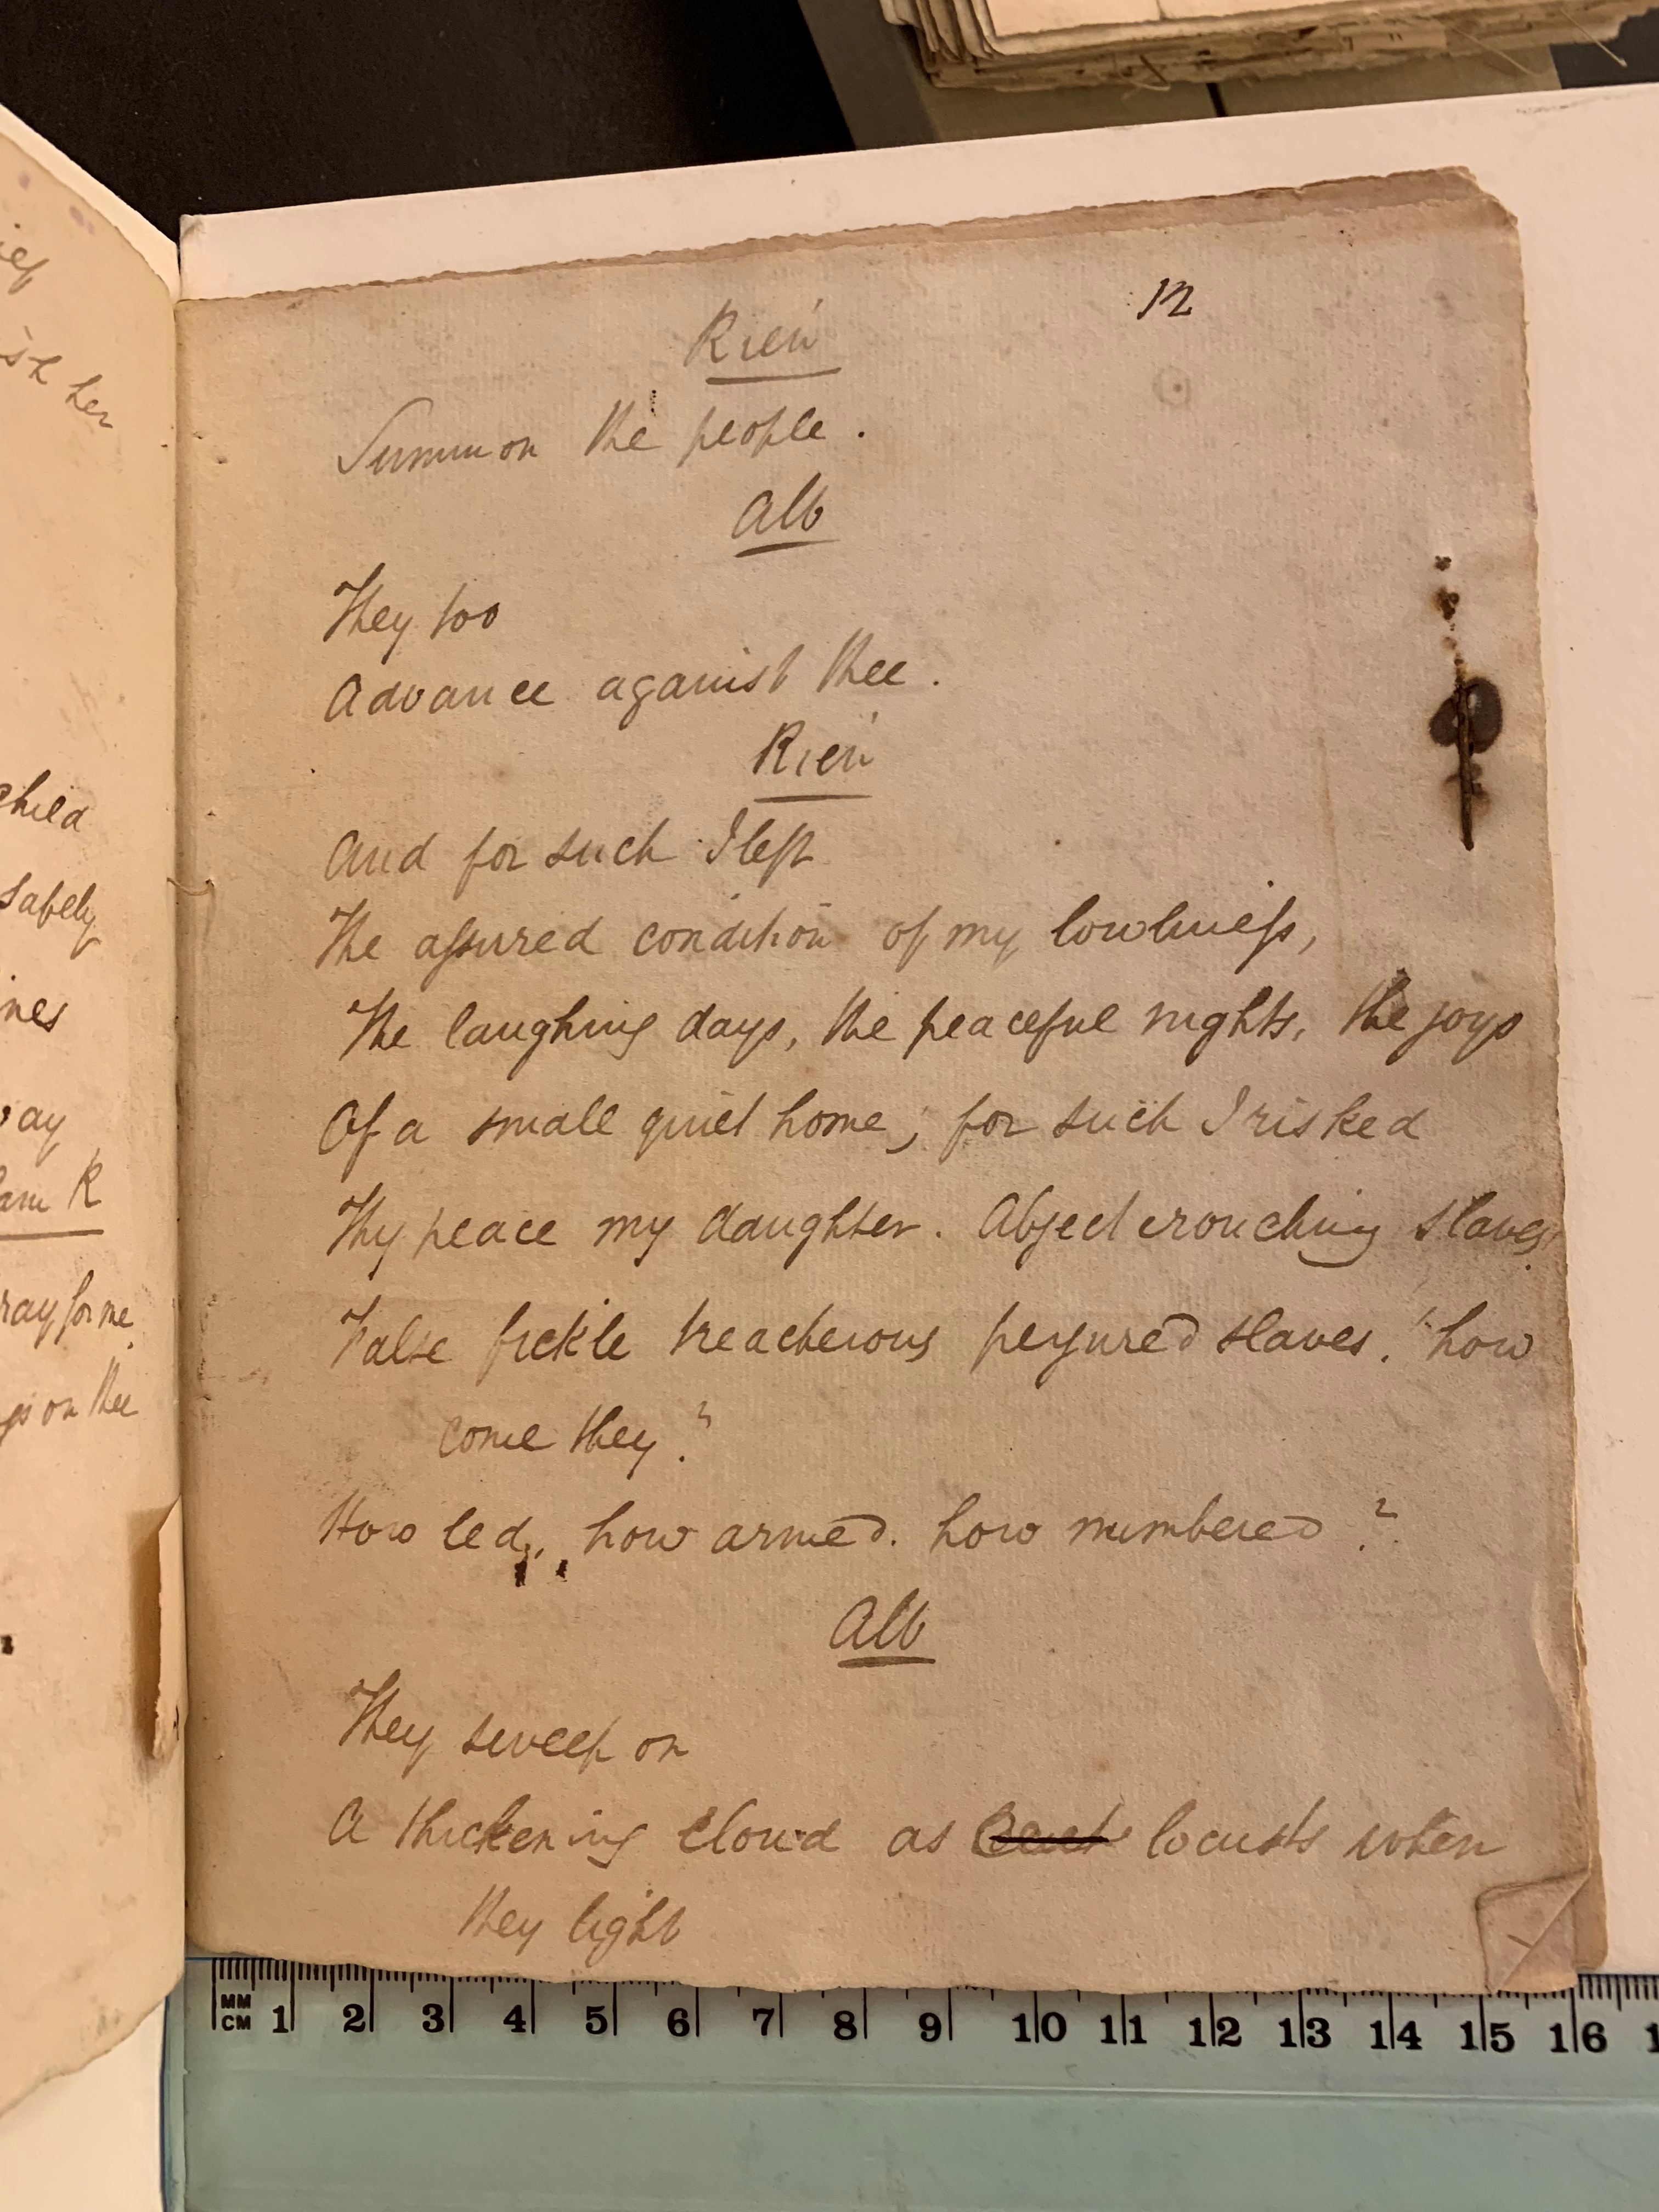 12
Rien
Summon the people.
Alb
They too
Advance against thee.
Rien
And for such I left
The assured condition of my lowliness,
The laughing days, the peaceful nights, the joys
Of a small quiet home; for such I risked
Thy peace my daughter. Abject crouching slaves
False fickle treacherous perjured slaves! how
come they?
How led, how armed. how numbered?
Alb
They sweep on
A thickening cloud as locusts when
they light
child
safely
ray for me
on thee
her
MM
CM 1 2 3 4 5 6 7 8 9 10 11 12 13 14 15 16